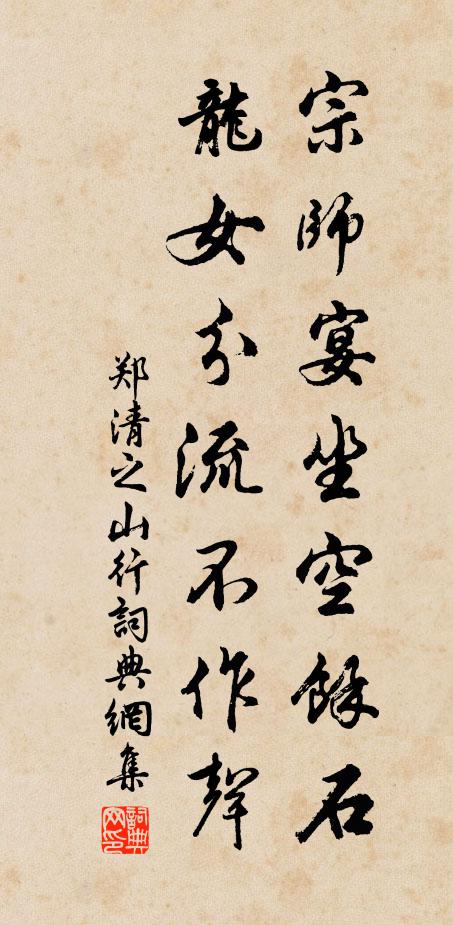 宗师宴坐空餘石
龍女分流不作聲
郑清之山行詞典網集
詞典网印